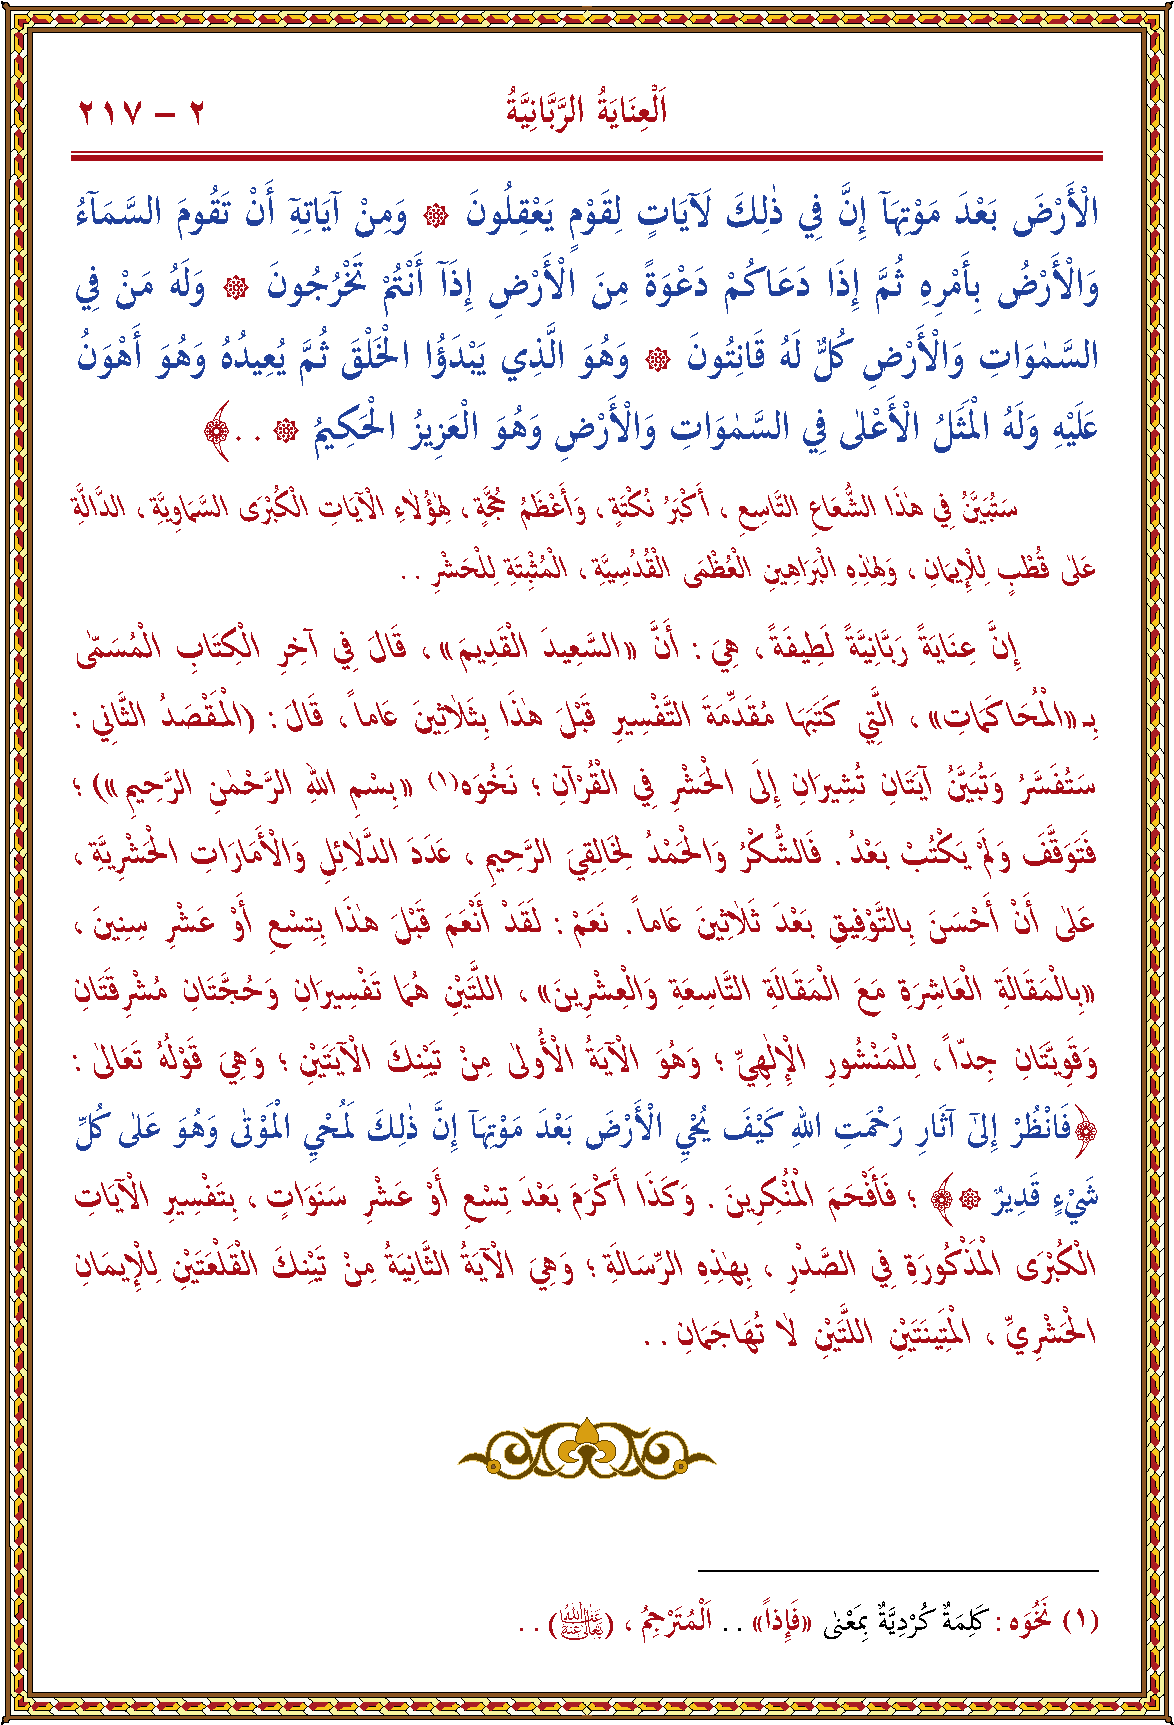 اَلْعِنَايَةُ الرَّبَّانِيَّةُ ٢ – ٢١٧
الْأَرْضَ بَعْدَ مَوْتِهَآ إِنَّ فِي ذٰلِكَ لَآيَاتٍ لِقَوْمٍ يَعْقِلُونَ ۞ وَمِنْ آيَاتِهِٓ أَنْ تَقُومَ السَّمَآءُ
وَالْأَرْضُ بِأَمْرِهِ ثُمَّ إِذَا دَعَاكُمْ دَعْوَةً مِنَ الْأَرْضِ إِذَآ أَنْتُمْ تَخْرُجُونَ ۞ وَلَهُ مَنْ فِي
السَّمٰوَاتِ وَالْأَرْضِ كُلٌّ لَهُ قَانِتُونَ ۞ وَهُوَ الَّذِي يَبْدَؤُا الْخَلْقَ ثُمَّ يُعِيدُهُ وَهُوَ أَهْوَنُ
عَلَيْهِ وَلَهُ الْمَثَلُ الْأَعْلٰى فِي السَّمٰوَاتِ وَالْأَرْضِ وَهُوَ الْعَزِيزُ الْحَكِيمُ ۞ . . ﴾
سَتُبَيَّنُ فِي هٰذَا الشُّعَاعِ التَّاسِعِ ، أَكْبَرُ نُكْتَةٍ ، وَأَعْظَمُ حُجَّةٍ ، لِهٰؤُلَاءِ الْآيَاتِ الْكُبْرَى السَّمَاوِيَّةِ ، الدَّالَّةِ
عَلٰى قُطْبٍ لِلْإِيمَانِ ، وَلِهٰذِهِ الْبَرَاهِينِ الْعُظْمَى الْقُدُسِيَّةِ ، الْمُثْبِتَةِ لِلْحَشْرِ . .
إِنَّ عِنَايَةً رَبَّانِيَّةً لَطِيفَةً ، هِيَ : أَنَّ «السَّعِيدَ الْقَدِيمَ» ، قَالَ فِي آخِرِ الْكِتَابِ الْمُسَمّٰى
بِـ«الْمُحَاكَمَاتِ» ، الَّتِي كَتَبَهَا مُقَدِّمَةَ التَّفْسِيرِ قَبْلَ هٰذَا بِثَلَاثِينَ عَاماً ، قَالَ : (الْمَقْصَدُ الثَّانِي :
سَتُفَسَّرُ وَتُبَيَّنُ آيَتَانِ تُشِيرَانِ إِلَى الْحَشْرِ فِي الْقُرْآنِ ؛ نَخُوَه(١) «بِسْمِ اللهِ الرَّحْمٰنِ الرَّحِيمِ») ؛
فَتَوَقَّفَ وَلَمْ يَكْتُبْ بَعْدُ . فَالشُّكْرُ وَالْحَمْدُ لِخَالِقِيَ الرَّحِيمِ ، عَدَدَ الدَّلَائِلِ وَالْأَمَارَاتِ الْحَشْرِيَّةِ ،
عَلٰى أَنْ أَحْسَنَ بِالتَّوْفِيقِ بَعْدَ ثَلَاثِينَ عَاماً . نَعَمْ : لَقَدْ أَنْعَمَ قَبْلَ هٰذَا بِتِسْعِ أَوْ عَشْرِ سِنِينَ ،
«بِالْمَقَالَةِ الْعَاشِرَةِ مَعَ الْمَقَالَةِ التَّاسِعَةِ وَالْعِشْرِينَ» ، اللَّتَيْنِ هُمَا تَفْسِيرَانِ وَحُجَّتَانِ مُشْرِقَتَانِ
وَقَوِيَّتَانِ جِدّاً ، لِلْمَنْشُورِ الْإِلٰهِيِّ ؛ وَهُوَ الْآيَةُ الْأُولٰى مِنْ تَيْنِكَ الْآيَتَيْنِ ؛ وَهِيَ قَوْلُهُ تَعَالٰى :
﴿فَانْظُرْ إِلٰٓى آثَارِ رَحْمَتِ اللهِ كَيْفَ يُحْيِي الْأَرْضَ بَعْدَ مَوْتِهَآ إِنَّ ذٰلِكَ لَمُحْيِي الْمَوْتٰى وَهُوَ عَلٰى كُلِّ
شَيْءٍ قَدِيرٌ ۞﴾ ؛ فَأَفْحَمَ الْمُنْكِرِينَ . وَكَذَا أَكْرَمَ بَعْدَ تِسْعِ أَوْ عَشْرِ سَنَوَاتٍ ، بِتَفْسِيرِ الْآيَاتِ
الْكُبْرَى الْمَذْكُورَةِ فِي الصَّدْرِ ، بِهٰذِهِ الرِّسَالَةِ ؛ وَهِيَ الْآيَةُ الثَّانِيَةُ مِنْ تَيْنِكَ الْقَلْعَتَيْنِ لِلْإِيمَانِ
الْحَشْرِيِّ ، الْمَتِينَتَيْنِ اللَّتَيْنِ لَا تُهَاجَمَانِ . .
(١) نَخُوَه : كَلِمَةٌ كُرْدِيَّةٌ بِمَعْنٰى «فَإِذاً» . . اَلْمُتَرْجِمُ ، () . .